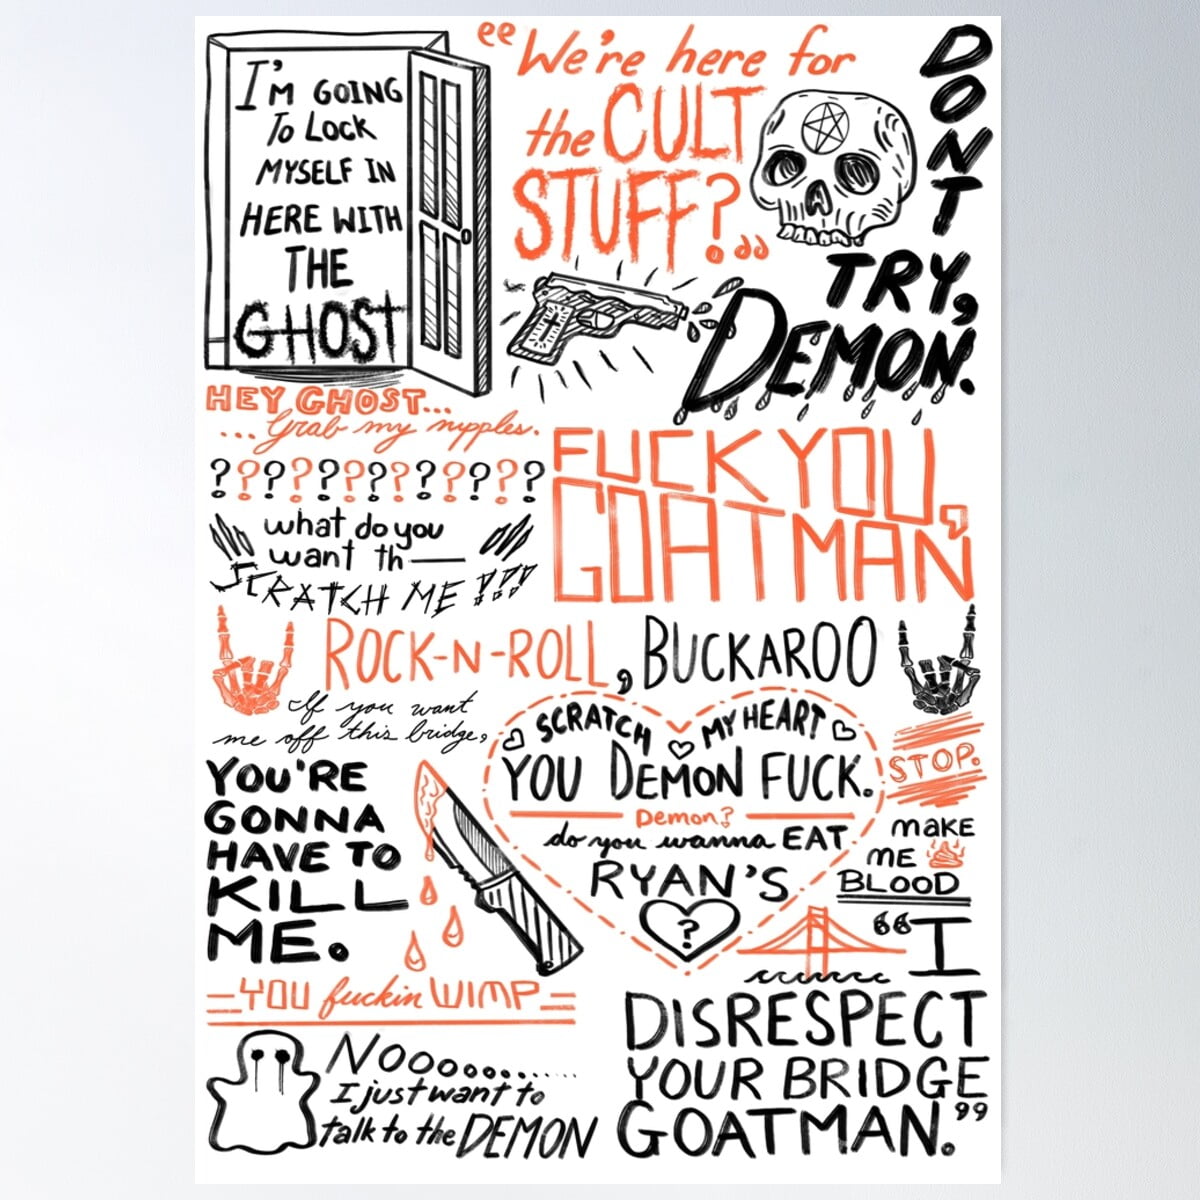 I'M GOING
To LOCK
MYSELF IN
HERE WITH
THE
GHOST
"We're here for
the CULT
STUFF?"
DON'T
TRY,
DEMON.
HEY GHOST...
...Grab my nipples.
? ? ? ? ? ? ? ? ? ? ? ? ?
what do you
want th—
SCRATCH ME !!!
FUCK YOU,
GOATMAN
ROCK-N-ROLL, BUCKAROO
If you want
me off this bridge,
YOU'RE
GONNA
HAVE TO
KILL
ME.
SCRATCH MY HEART
YOU DEMON FUCK.
Demon?
do you wanna EAT
RYAN'S
?
STOP.
MAKE
ME
BLOOD
YOU fuckin WIMP
"I
DISRESPECT
YOUR BRIDGE
GOATMAN."
NOOoooo..........
I just want to
talk to the DEMON